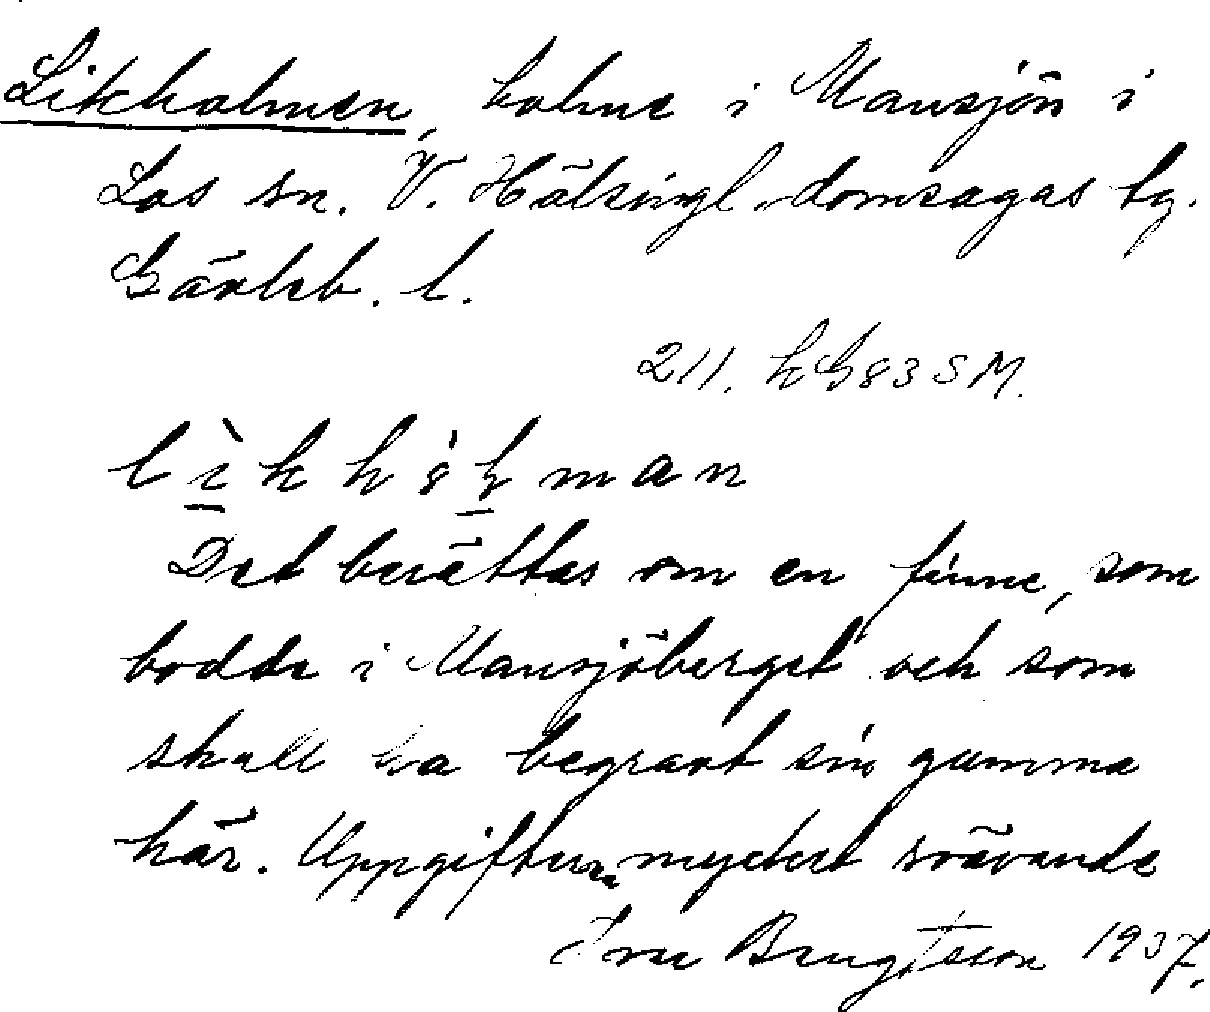 Likholmen, holme i Mansjön i
Los sn. V. Hälsingl. domsagas tg.
Gävleb. l.
211. h G 83 S M.
Det berättas om en finne, som
bodde i Mansjöberget och som
skall ha begravt sin gumma
här. Uppgifterna mycket svävande
Bengtsson 1937.